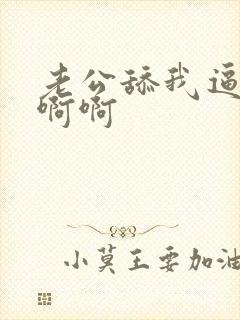 老公舔我逼
啊啊
小莫王要加油